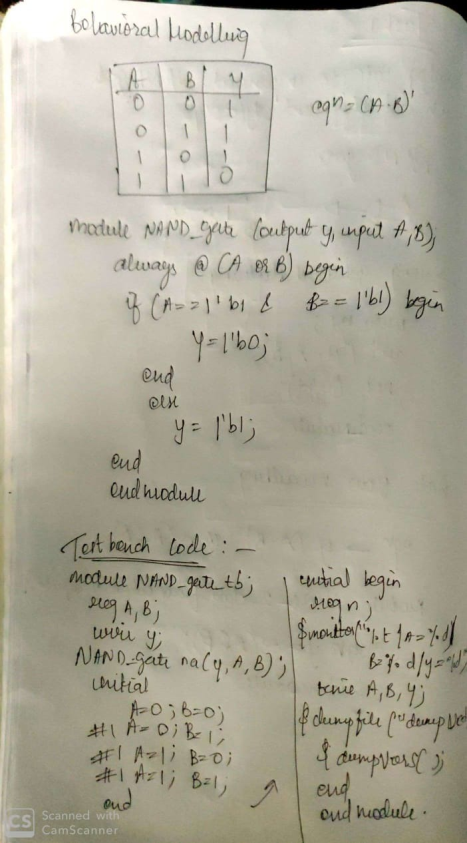 Behavioral Modelling
A B Y
0 0 1
0 1 1
1 0 1
1 1 0
eqn = (A·B)'
module NAND_gate (output y, input A, B);
always @ (A or B) begin
if (A == 1'b1 & B == 1'b1) begin
Y = 1'b0;
end
else
y = 1'b1;
end
endmodule
Testbench Code : —
module NAND_gate_tb;
reg A, B;
wire y;
NAND_gate na(y, A, B);
initial
A=0; B=0;
#1 A=0; B=1;
#1 A=1; B=0;
#1 A=1; B=1;
end
initial begin
$monitor("%t | A = %d |
B = %d | y = %d"
time A, B, y;
$dumpfile ("dump
$dumpvars( );
end
endmodule.
CS Scanned with
CamScanner